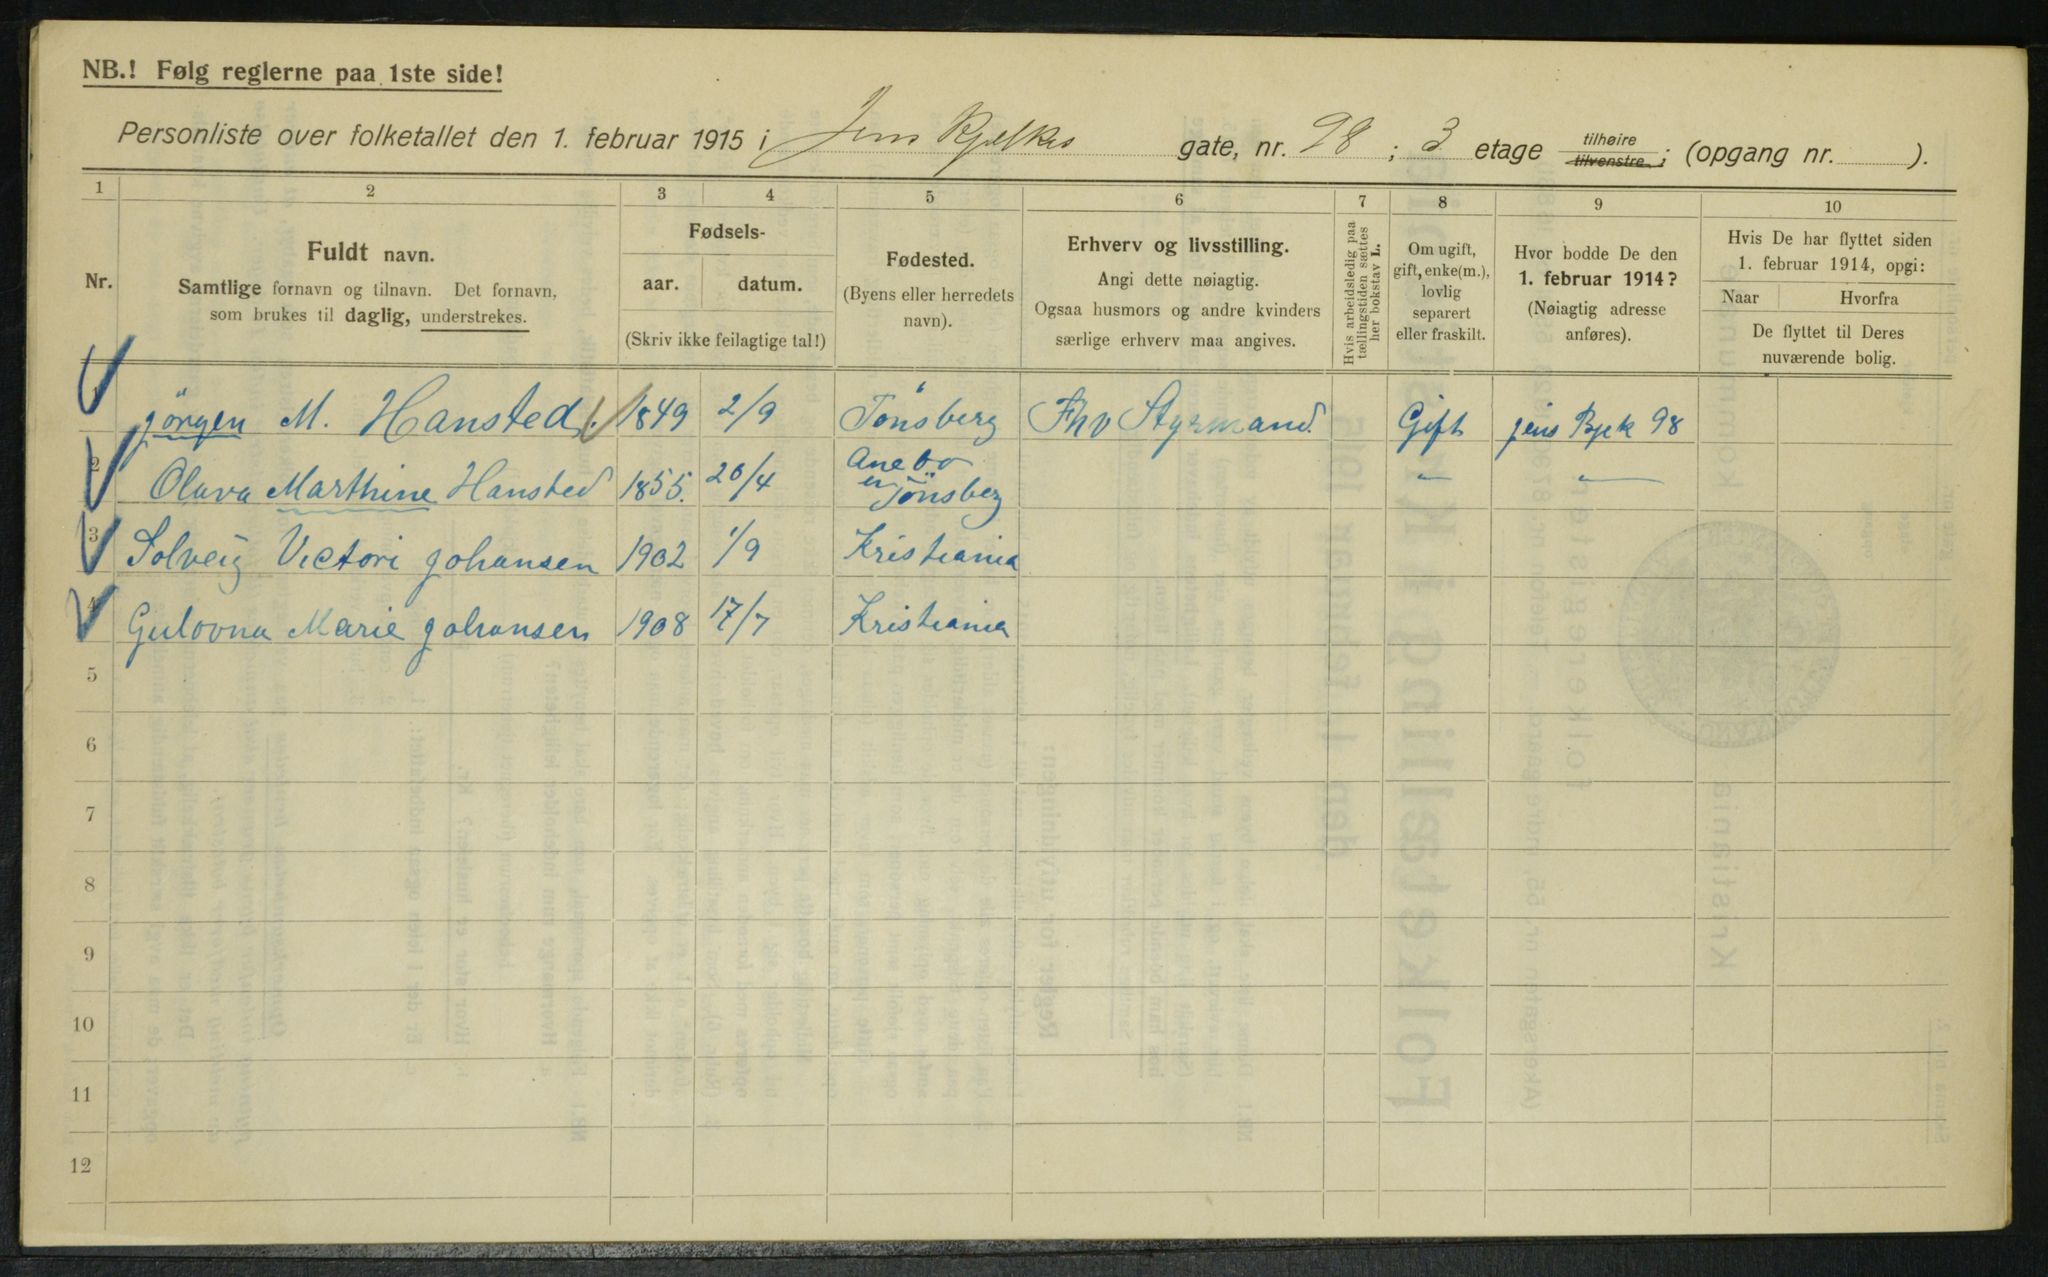 NB.! Følg reglerne paa 1ste side!
Personliste over folketallet den 1. februar 1915 i Jens Bjelkes gate, nr. 98 ; 3 etage tilhøire tilvenstre ; (opgang nr. ).
1 2 3 4 5 6 7 8 9 10
Nr.
Fuldt navn.
Samtlige fornavn og tilnavn. Det fornavn,
som brukes til daglig, understrekes.
Fødsels-
aar. datum.
(Skriv ikke feilagtige tal!)
Fødested.
(Byens eller herredets
navn).
Erhverv og livsstilling.
Angi dette nøiagtig.
Ogsaa husmors og andre kvinders
særlige erhverv maa angives.
Hvis arbeidsledig paa
tællingstiden sættes
her bokstav L.
Om ugift,
gift, enke(m.),
lovlig
separert
eller fraskilt.
Hvor bodde De den
1. februar 1914?
(Nøiagtig adresse
anføres).
Hvis De har flyttet siden
1. februar 1914, opgi:
Naar Hvorfra
De flyttet til Deres
nuværende bolig.
1 Jörgen M. Hansted. 1849 2/9 Tönsberg Fhv Styrmand. Gift jens Bjek 98
2 Olava Marthine Hansted 1855. 20/4 Anebo Tönsberg " "
3 Solveig Victori Johansen 1902 1/9 Kristiania
4 Gulovna Marie Johansen 1908 17/7 Kristiania
5
6
7
8
9
10
11
12